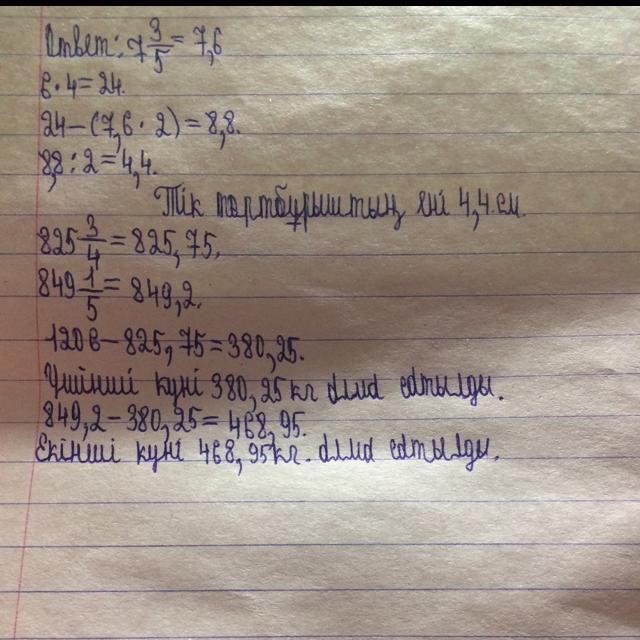 Ответ: 7 3/5 = 7,6
6·4=24.
24-(7,6·2)=8,8.
8,8:2=4,4.
Тік төртбұрыштың ені 4,4 см.
825 3/4 = 825,75.
849 1/5 = 849,2.
1206-825,75=380,25.
Үшінші күні 380,25 кг алма сатылды.
849,2-380,25=468,95.
Екінші күні 468,95кг. алма сатылды.